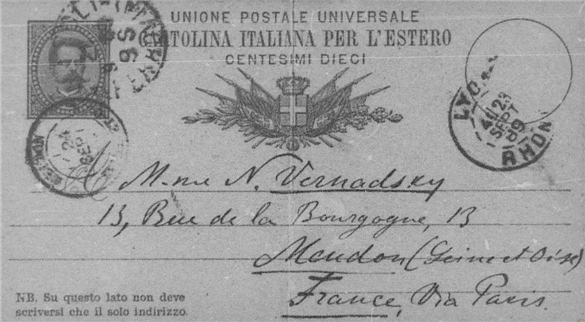 UNIONE POSTALE UNIVERSALE
CARTOLINA ITALIANA PER L'ESTERO
CENTESIMI DIECI
LYON
23
SEPT
89
RHONE
24
SEPT
Mme N. Vernadsky
13, Rue de la Bourgogne, 13
Meudon (Seine et Oise)
France, Via Paris.
NB. Su questo lato non deve
scriversi che il solo indirizzo.